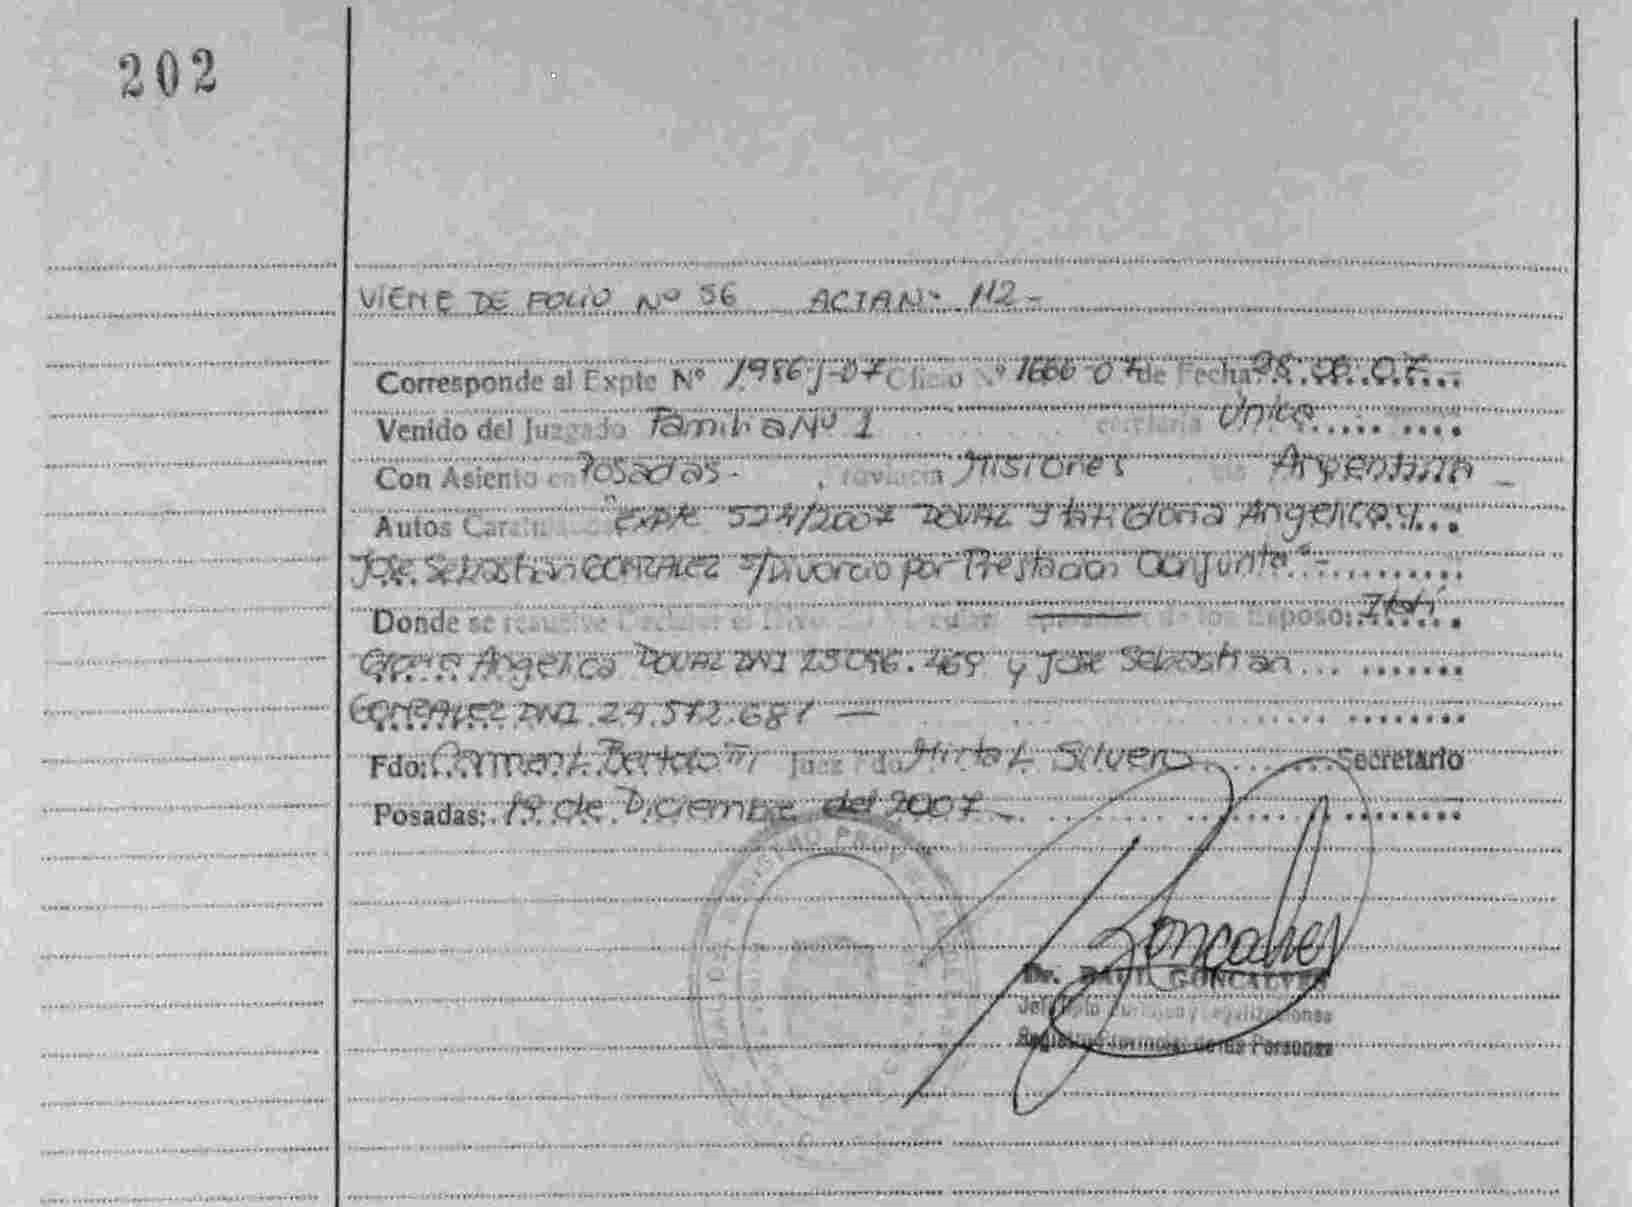 202
VIENE DE FOLIO Nº 56 ACTA Nº 112 -
Corresponde al Expte Nº 1986-J-07 Oficio Nº 1666-07 de Fecha: 28.06.07
Venido del Juzgado Familia Nº 1 Secretaria Unica
Con Asiento en Posadas. Provincia Misiones Argentina
Autos "Expte 524/2007 DOVAL Itati Gloria Angelica y
Jose Sebastian GONZALEZ s/Divorcio por Prestacion Conjunta" -
Donde se resuelve Declarar el Divorcio Vincular de los Esposo: Itati
Gloria Angelica DOVAL DNI y Jose Sebastian
GONZALEZ DNI 24.572.681 -
Fdo: Carmen L. Bertolotti Juez Fdo Mirta L. Silvero Secretario
Posadas: 19 de Diciembre del 2007 -
Goncalves
Dr. RAUL GONCALVES
Registro Provincial de las Personas